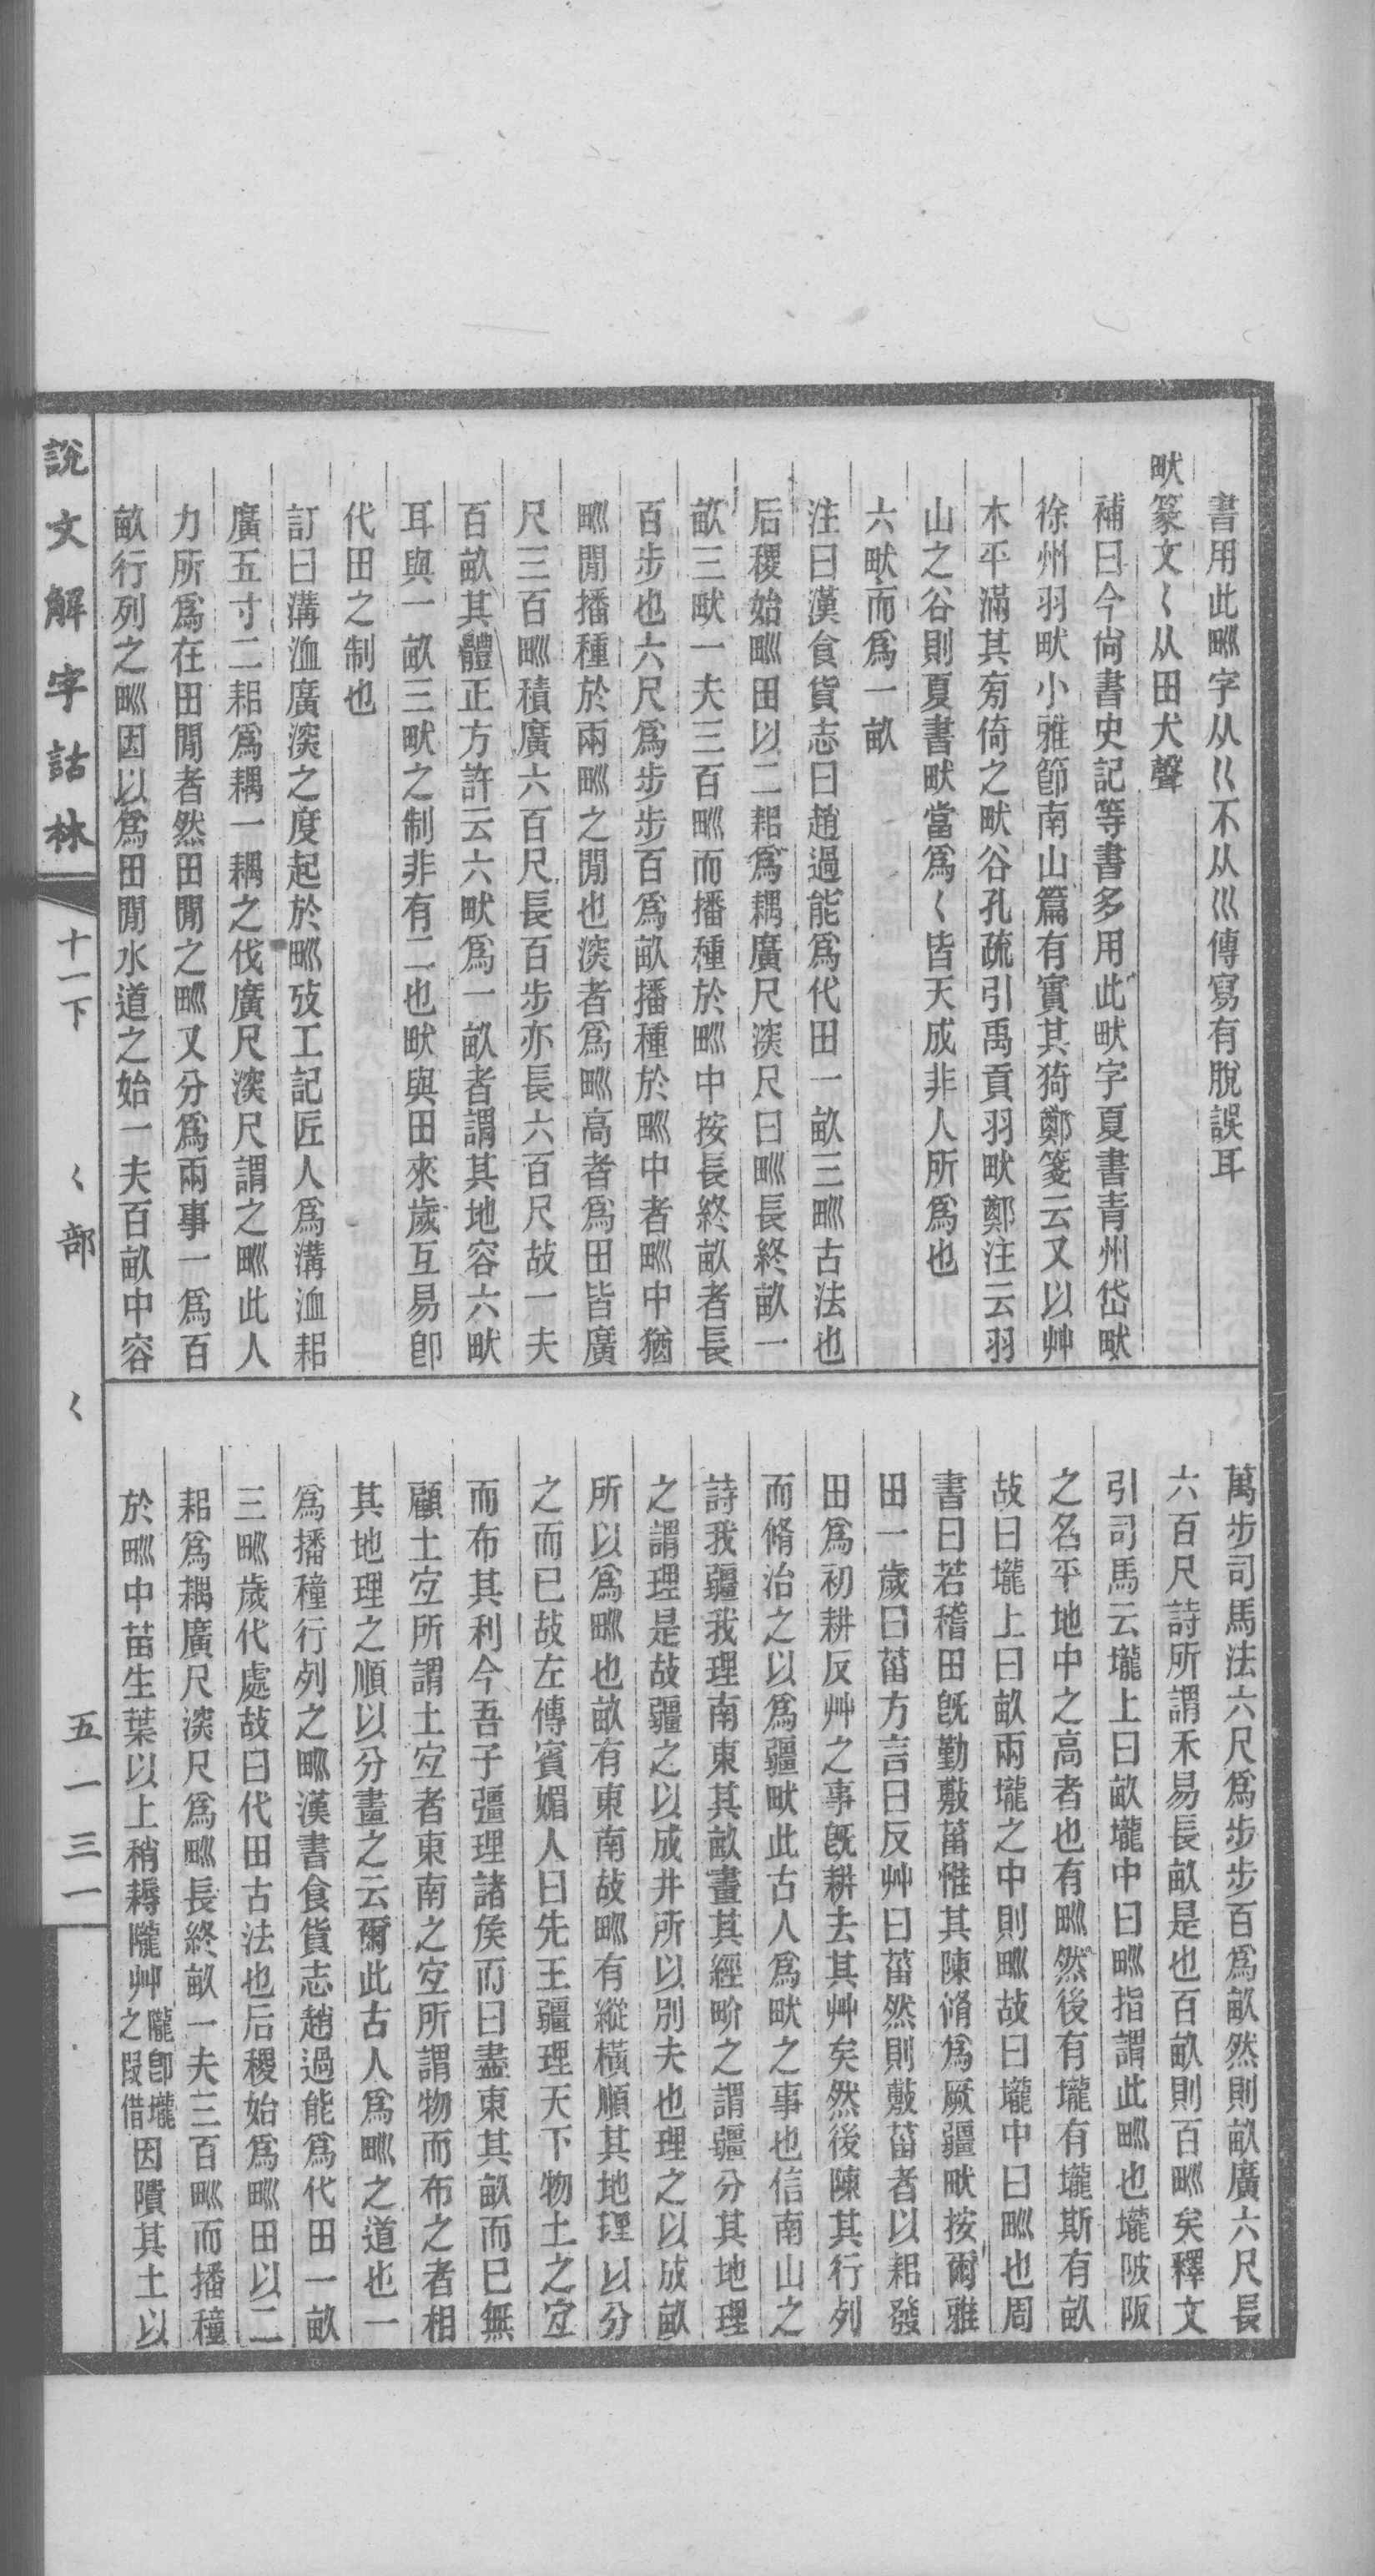 書用此甽字从巜不从巛傳寫有脫誤耳
畎篆文𡿨从田犬聲
補曰今尙書史記等書多用此畎字夏書靑州岱畎
徐州羽畎小雅節南山篇有實其猗鄭箋云又以艸
木平滿其㫄倚之畎谷孔疏引禹貢羽畎鄭注云羽
山之谷則夏書畎當爲𡿨皆天成非人所爲也
六畎而爲一畝
注曰漢食貨志曰趙過能爲代田一畝三甽古法也
后稷始甽田以二耜爲耦廣尺深尺曰甽長終畝一
畝三畎一夫三百甽而播種於甽中按長終畝者長
百步也六尺爲步步百爲畝播種於甽中者甽中猶
甽閒播種於兩甽之閒也深者爲甽高者爲田皆廣
尺三百甽積廣六百尺長百步亦長六百尺故一夫
百畝其體正方許云六畎爲一畝者謂其地容六畎
耳與一畝三畎之制非有二也畎與田來歲互易卽
代田之制也
訂曰溝洫廣深之度起於甽攷工記匠人爲溝洫耜
廣五寸二耜爲耦一耦之伐廣尺深尺謂之甽此人
力所爲在田閒者然田閒之甽又分爲兩事一爲百
畝行列之甽因以爲田閒水道之始一夫百畝中容
萬步司馬法六尺爲步步百爲畝然則畝廣六尺長
六百尺詩所謂禾易長畝是也百畝則百甽矣釋文
引司馬云壠上曰畝壠中曰甽指謂此甽也壠陂阪
之名平地中之高者也有甽然後有壠有壠斯有畝
故曰壠上曰畝兩壠之中則甽故曰壠中曰甽也周
書曰若稽田旣勤敷菑惟其陳脩爲厥疆畎按爾雅
田一歲曰菑方言曰反艸曰菑然則敷菑者以耜發
田爲初耕反艸之事旣耕去其艸矣然後陳其行列
而脩治之以爲疆畎此古人爲畎之事也信南山之
詩我疆我理南東其畝畫其經畍之謂疆分其地理
之謂理是故疆之以成井所以別夫也理之以成畝
所以爲甽也畝有東南故甽有縱橫順其地理以分
之而已故左傳賓媚人曰先王疆理天下物土之宐
而布其利今吾子疆理諸侯而曰盡東其畝而已無
顧土宐所謂土宐者東南之宐所謂物而布之者相
其地理之順以分畫之云爾此古人爲甽之道也一
爲播穜行列之甽漢書食貨志趙過能爲代田一畝
三甽歲代處故曰代田古法也后稷始爲甽田以二
耜爲耦廣尺深尺爲甽長終畝一夫三百甽而播穜
於甽中苗生葉以上稍耨隴艸隴卽壠之叚借因隤其土以
說文解字詁林
十一下
𡿨部
𡿨
五一三一